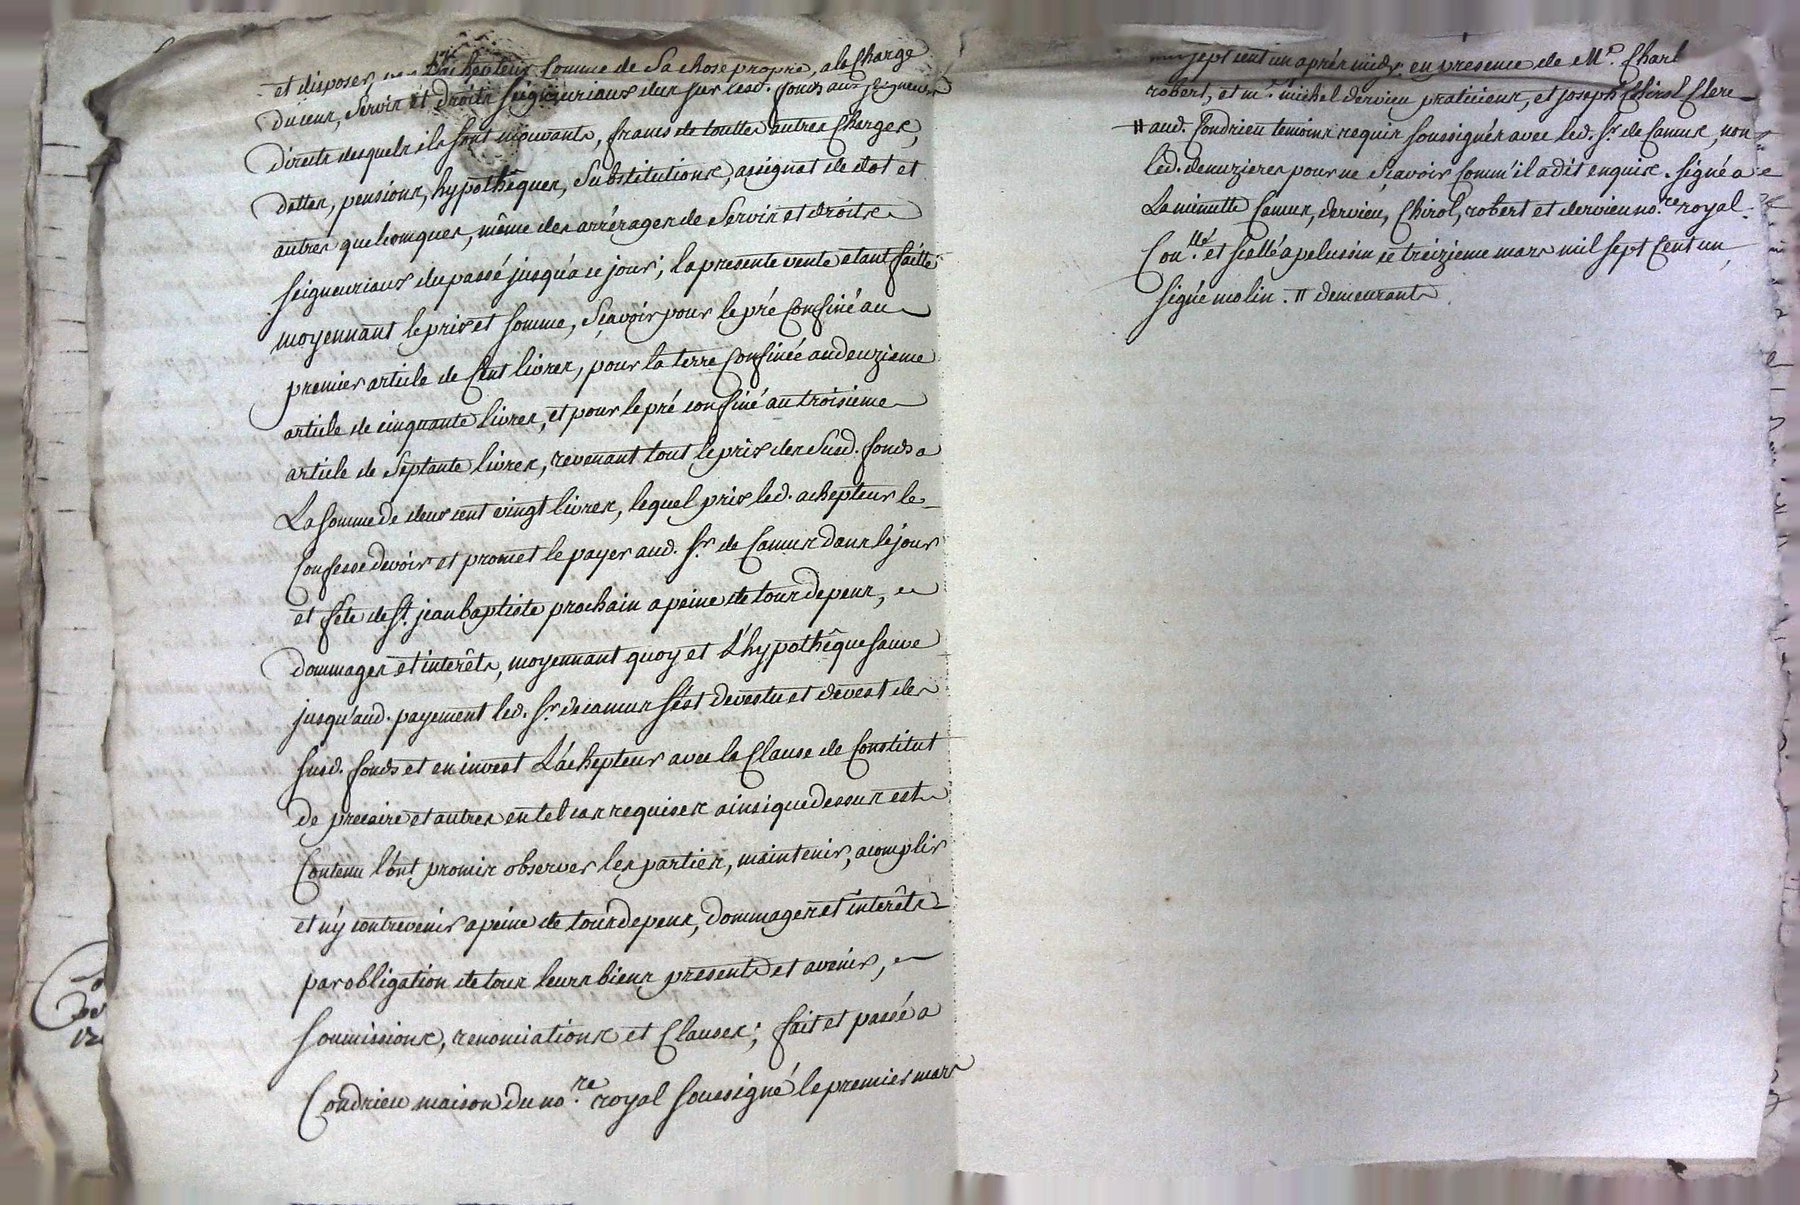 et disposer par l'achepteur Comme de Sa chose propre, a la Charge
du cens, Servis et droits Seigneuriaux dus sur lesd. fonds aux seigneurs
directs desquels ils sont mouvants, francs de touttes autres Charges,
dettes, pensions, hypothêques, Substitutions, assignat de dot et
autres quelconques, même des arrérages de Servis et droits
Seigneuriaux du passé jusqu'a ce jour; la presente vente etant faitte
moyennant le prix et somme, sçavoir pour le pré Confiné au
premier article de Cent livres, pour la terre Confinée au deuzieme
article de cinquante livres, et pour le pré confiné au troisieme
article de Septante livres, revenant tout le prix des Susd. fonds a
La Somme de deux cent vingt livres, lequel prix led. achepteur le
Confesse devoir et promet le payer aud. Sr. de Camus dans le jour
et fête de St. jean baptiste prochain a peine de tous depens,
dommages et interêts, moyennant quoy et L'hypothêque sauve
jusqu'aud. payement led. Sr. de camus s'est devestu et devest des
susd. fonds et en invest L'achepteur avec la Clause de Constitut
de precaire et autres en tel cas requises ainsi que dessus est
Contenu l'ont promis observer les parties, maintenir, acomplir
et n'y contrevenir a peine de tous depens, dommages et interêts
par obligation de tous leurs biens presents et avenir,
Soumissions, renonciations et Clauses; fait et passé a
Condrieu maison du no.re royal soussigné le premier mars
mil sept cent un aprés midy en presence de Mr. Charl
robert, et mr. michel dervieu praticiens, et joseph Chirol Clerc
⁑ aud. Condrieu temoins requis soussignés avec led. Sr. de Camus, non
led. deuzieres pour ne Sçavoir Comm'il a dit enquis. Signé a
La minutte Camus, dervieu, Chirol, robert et dervieu no.re royal.
Con.llé et scellé a pelussin ce treizieme mars mil sept Cent un,
signé molin. ⁑ demeurants.